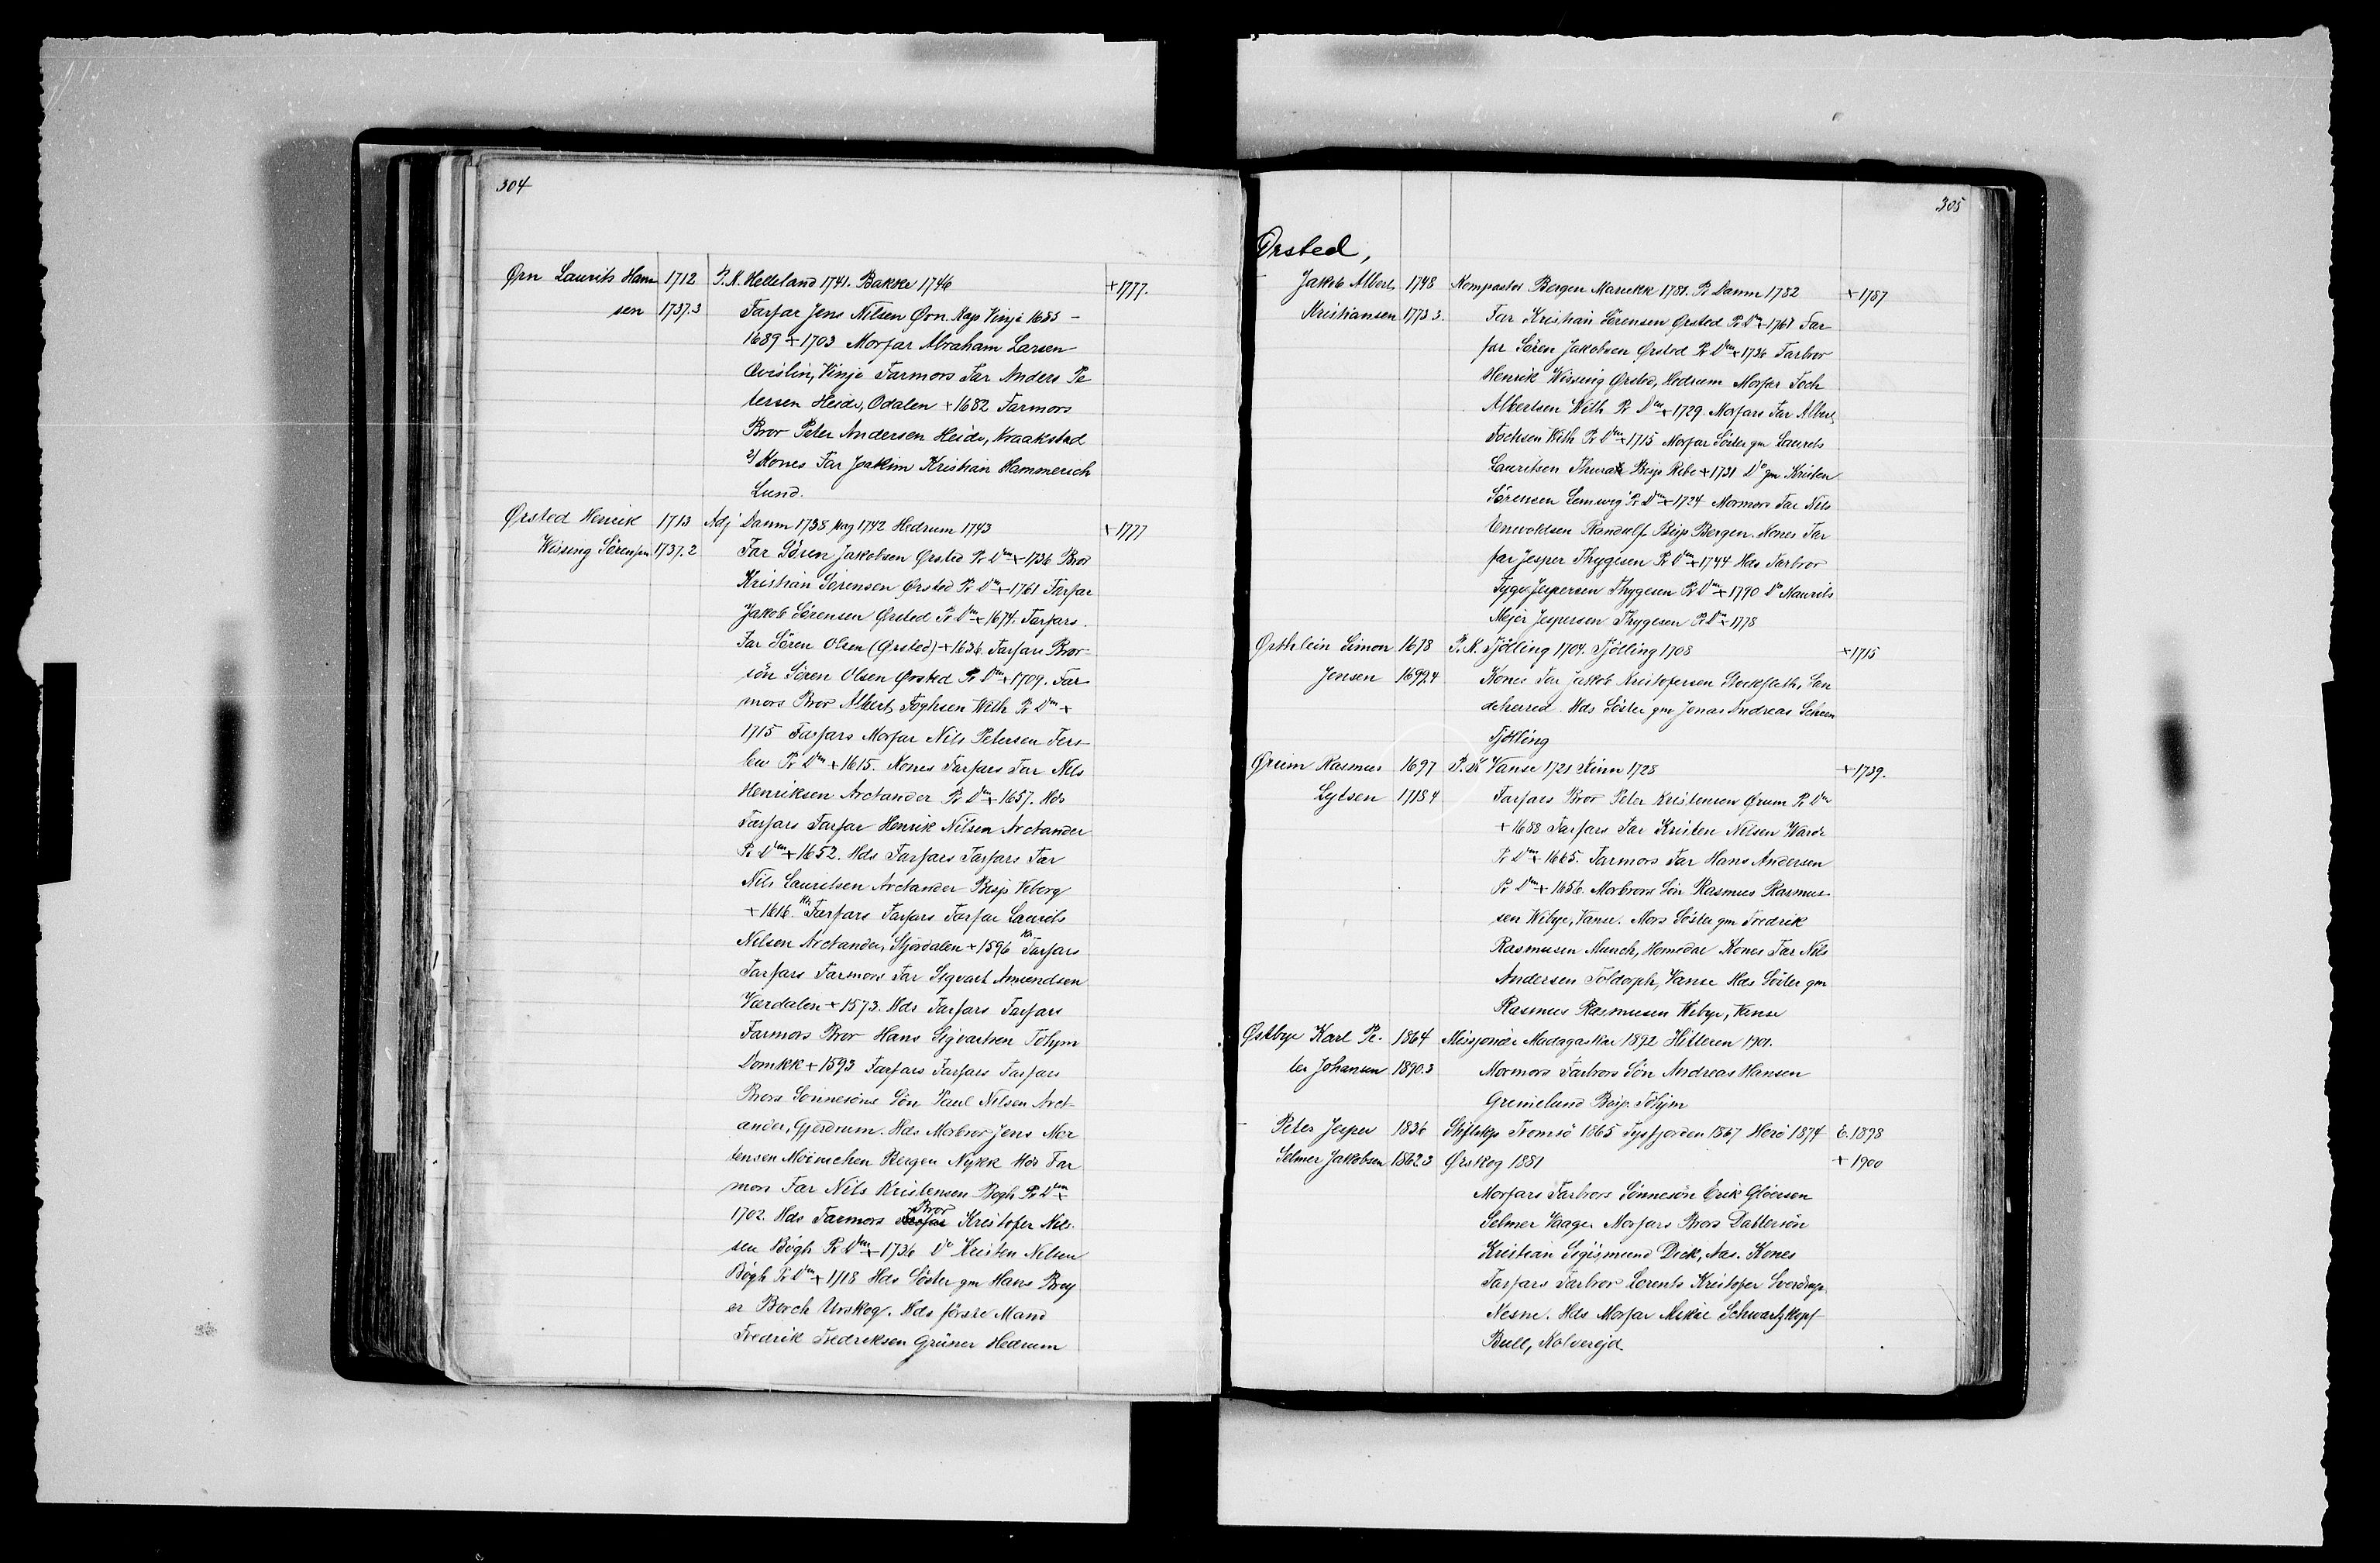 304
Ørn Laurits Han 1712 P. K. Helleland 1741. Bakke 1746 +1777.
sen 1737.3 Farfar Jens Nilsen Ørn. Kap Vinje 1685 -
1689 + 1703 Morfar Abraham Larsen
Qvislin, Vinje Farmors Far Anders Pe
tersen Heide, Odalen + 1682 Farmors
Bror Peter Andersen Heide, Kraakstad
2/ Kones Far Joakim Kristian Hammerich
Lund.
Ørsted Henrik 1713 Adj Danm 1738, Kag 1742 Hedrum 1743 +1777
Wissing Sørensen 1737.2 Far Søren Jakobsen Ørsted Pr Dm + 1736 Bror
Kristian Sørensen Ørsted Pr Dm + 1761 Farfar
Jakob Sørensen Ørsted Pr Dm + 1674. Farfars
Far Søren Olsen (Ørsted) + 1636. Farfars Bror
søn Søren Olsen Ørsted Pr Dm + 1709. Far
mors Bror Albert Foghsen With Pr Dm +
1715 Farfars Morfar Nils Petersen Ters
lew Pr Dm + 1615. Kones Farfars Far Nils
Henriksen Arctander Pr Dm + 1657. Hds
Farfars Farfar Henrik Nilsen Arctander
Pr Dm + 1652. Hds Farfars Farfars Far
Nils Lauritsen Arctander Bisp Viborg
+ 1616. Hds Farfars Farfars Farfar Laurits
Nilsen Arctander, Stjørdalen + 1596 Hds Farfars
Farfars Farmors Far Sigvart Amundsen
Værdalen + 1573. Hds Farfars Farfars
Farmors Bror Hans Sigvartsen Tøhjm
Domkk + 1593 Farfars Farfars Farfars
Brors Sønnesøns Søn Paul Nilsen Arct
ander, Gjerdrum. Hds Morbror Jens Mor
tensen Møinichen Bergen Nykk Hds Far
mors Far Nils Kristensen Bøgh Pr Dm +
1702. Hds Farmors Bror Kristofer Nils
sen Bøgh Pr Dm + 1736 Do Kristen Nilsen
Bøgh Pr Dm + 1718 Hds Søster gm Hans Brey
er Borch Urskog. Hds første Mand
Fredrik Fredriksen Grüner Hedrum
305
Ørsted,
Jakob Albert 1748 Kompastor Bergen Mariekk 1781. Pr Danm 1782 +1787
Kristiansen 1773 3. Far Kristian Sørensen Ørsted Pr Dm + 1761 Far
far Søren Jakobsen Ørsted Pr Dm + 1736 Farbror
Henrik Wissing Ørsted, Hedrum Morfar Foch
Albertsen With Pr Dm + 1729. Morfars Far Albert
Fochsen With Pr Dm + 1715 Morfar Søster gm Laurits
Lauritsen Thura Bisp Ribe + 1731 Do gm Kristen
Sørensen Lemwig Pr Dm + 1724 Mormors Far Nils
Enevoldsen Randulf Bisp Bergen. Kones Far
far Jesper Thygesen Pr Dm + 1744 Hds Farbror
Tyge Jespersen Thygesen Pr Dm + 1790 Do Maurits
Mejer Jespersen Thygesen Pr Dm + 1778
Ørthlein Simon 1678 P. K. Tjølling 1704. Tjølling 1708 +1715
Jensen 1699.4 Kones Far Jakob Kristofersen Stockfleth, San
deherred. Hds Søster gm Jonas Andreas Scheen
Tjølling
Ørum Rasmus 1697 P. K Vanse 1721 Kinn 1728 +1739.
Lytsen 1718 4 Farfars Bror Peter Kristensen Ørum Pr Dm
+ 1688 Farfars Far Kristen Nilsen Warde
Pr Dm + 1665. Farmors Far Hans Andersen
Pr Dm + 1656. Morbrors Søn Rasmus Rasmus
sen Wibye, Vanse. Mors Søster gm Fredrik
Rasmusen Munch, Homedal Kones Far Nils
Andersen Toldorph, Vanse Hds Søster gm
Rasmus Rasmusen Wibye, Vanse
Østbye Karl Pe- 1864 Missjonær Madagaskar 1892 Hitteren 1901.
ter Johansen 1890.3 Mormors Farbrors Søn Andreas Hansen
Grimelund Bisp Tøhjm
- Peter Jesper 1836 Stiftskp Tromsø 1865 Tysfjorden 1867 Herø 1874 E. 1898
Selmer Jakobsen 1862.3 Ørskog 1881 + 1900
Morfars Farbrors Sønnesøn Erik Gløersen
Selmer Vaage. Morfars Brors Dattersøn
Kristian Sigismund Dick, Aas. Kones
Farfars Farbror Lorents Kristofer Sverdrup
Nesne. Hds Morfar Mikal Schwartzkopf
Bull, Kolvereid.